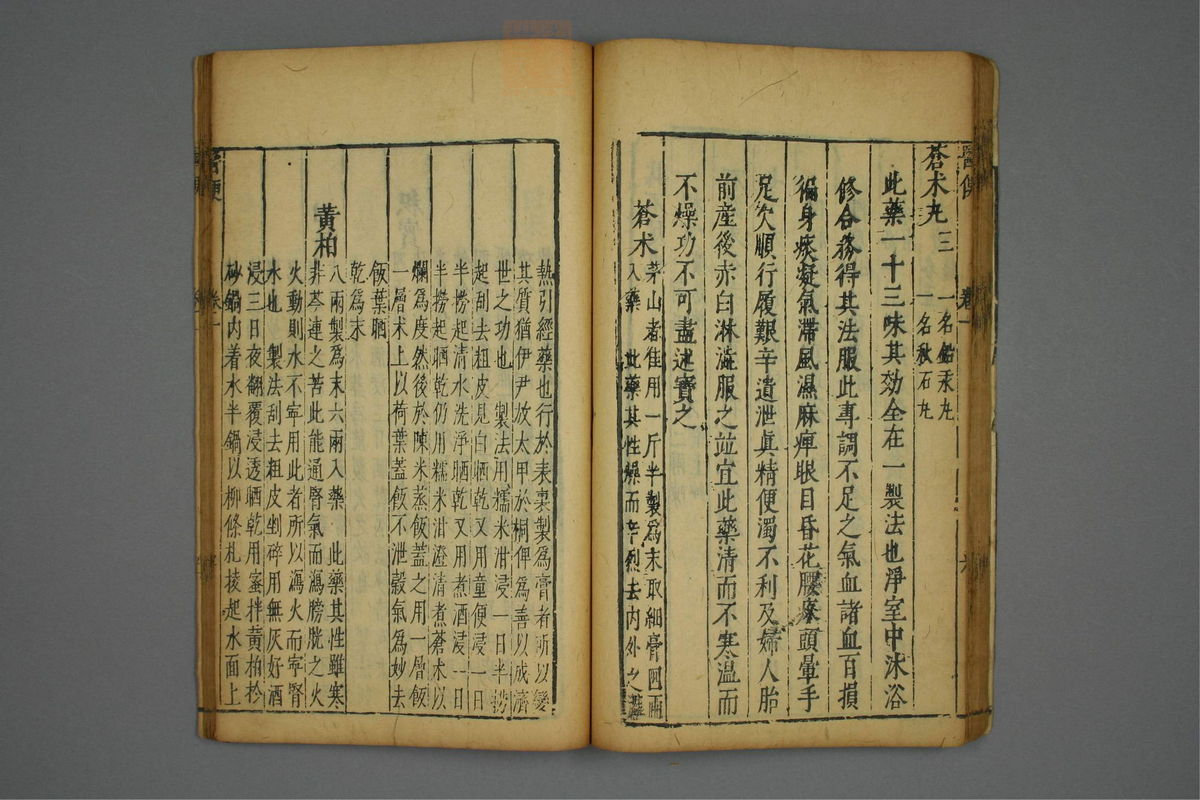 醫便
卷一
六
蒼朮丸三
一名鉛汞丸
一名秋石丸
此藥一十三味其効全在一製法也淨室中沐浴
修合務得其法服此專調不足之氣血諸血百損
徧身痰凝氣滯風濕麻痺眼目昏花腰疼頭暈手
足欠順行履艱辛遺泄眞精便濁不利及婦人胎
前産後赤白淋漓服之並宜此藥清而不寒温而
不燥功不可盡述寳之
蒼术
茅山者佳用一斤半製爲末取細膏四兩
入藥 此藥其性燥而辛烈去内外之濕
熱引經藥也行於表裏製爲膏者所以變
其質猶伊尹放太甲於桐俾爲善以成濟
世之功也 製法用糯米泔浸一日半撈
起刮去粗皮見白晒乾又用童便浸一日
半撈起清水洗淨晒乾又用煮酒浸一日
半撈起晒乾仍用糯米泔澄清煮蒼术以
爛爲度然後於陳米蒸飯蓋之用一層飯
一層术上以荷葉蓋飯不泄穀氣爲妙去
飯葉晒
乾爲末
黄柏
八兩製爲末六兩入藥 此藥其性雖寒
非芩連之苦此能通腎氣而瀉膀胱之火
火動則水不寧用此者所以瀉火而寧腎
水也 製法刮去粗皮剉碎用無灰好酒
浸三日夜翻覆浸透晒乾用蜜拌黄柏於
砂鍋内着水半鍋以柳條札棱起水面上
醫便
卷一